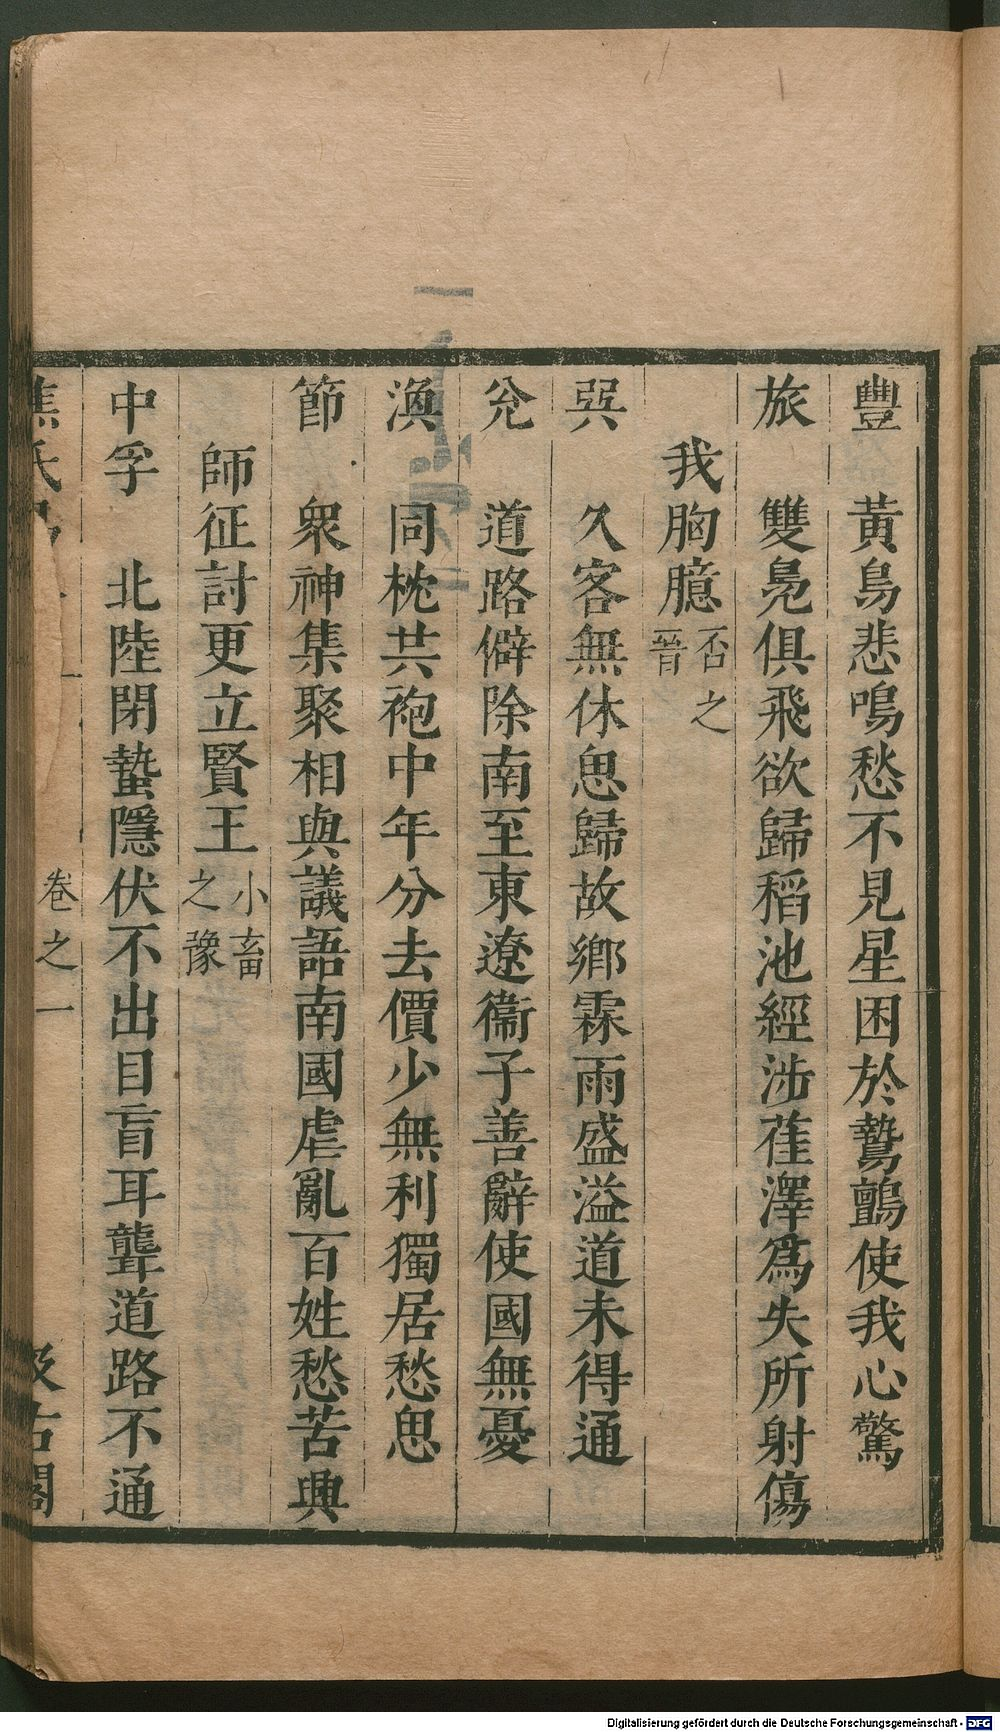 豐 黃鳥悲鳴愁不見星困於鷙鸇使我心驚
旅 雙鳧俱飛欲歸稻池經涉萑澤爲矢所射傷
我胸臆否之晉
巽 久客無休思歸故鄉霖雨盛溢道未得通
兊 道路僻除南至東遼衞子善辭使國無憂
渙 同枕共袍中年分去價少無利獨居愁思
節 衆神集聚相與議語南國虐亂百姓愁苦興
師征討更立賢王小畜之豫
中孚 北陸閉蟄隱伏不出目盲耳聾道路不通
焦氏 卷之一 汲古閣
Digitalisierung gefördert durch die Deutsche Forschungsgemeinschaft - DFG